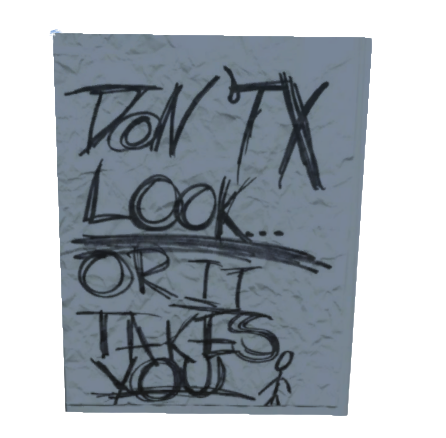 DON'T X
LOOK...
OR IT
TAKES
YOU